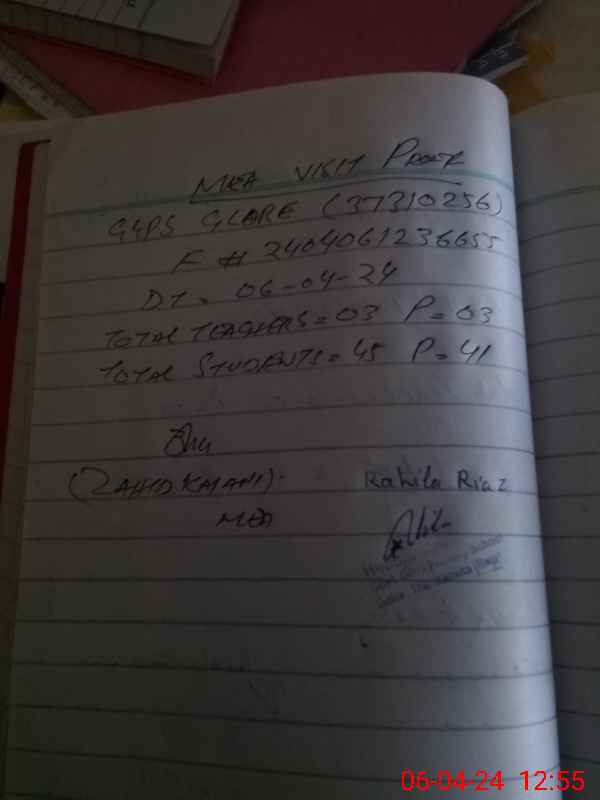 MEA VISIT PROOF
GGPS GLORE (37310256)
F # 2404061236655
DT. 06-04-24
TOTAL TEACHERS = 03 P = 03
TOTAL STUDENTS = 45 P = 41
(ZAHID KAYANI). Rahila Riaz
MEA
06-04-24 12:55